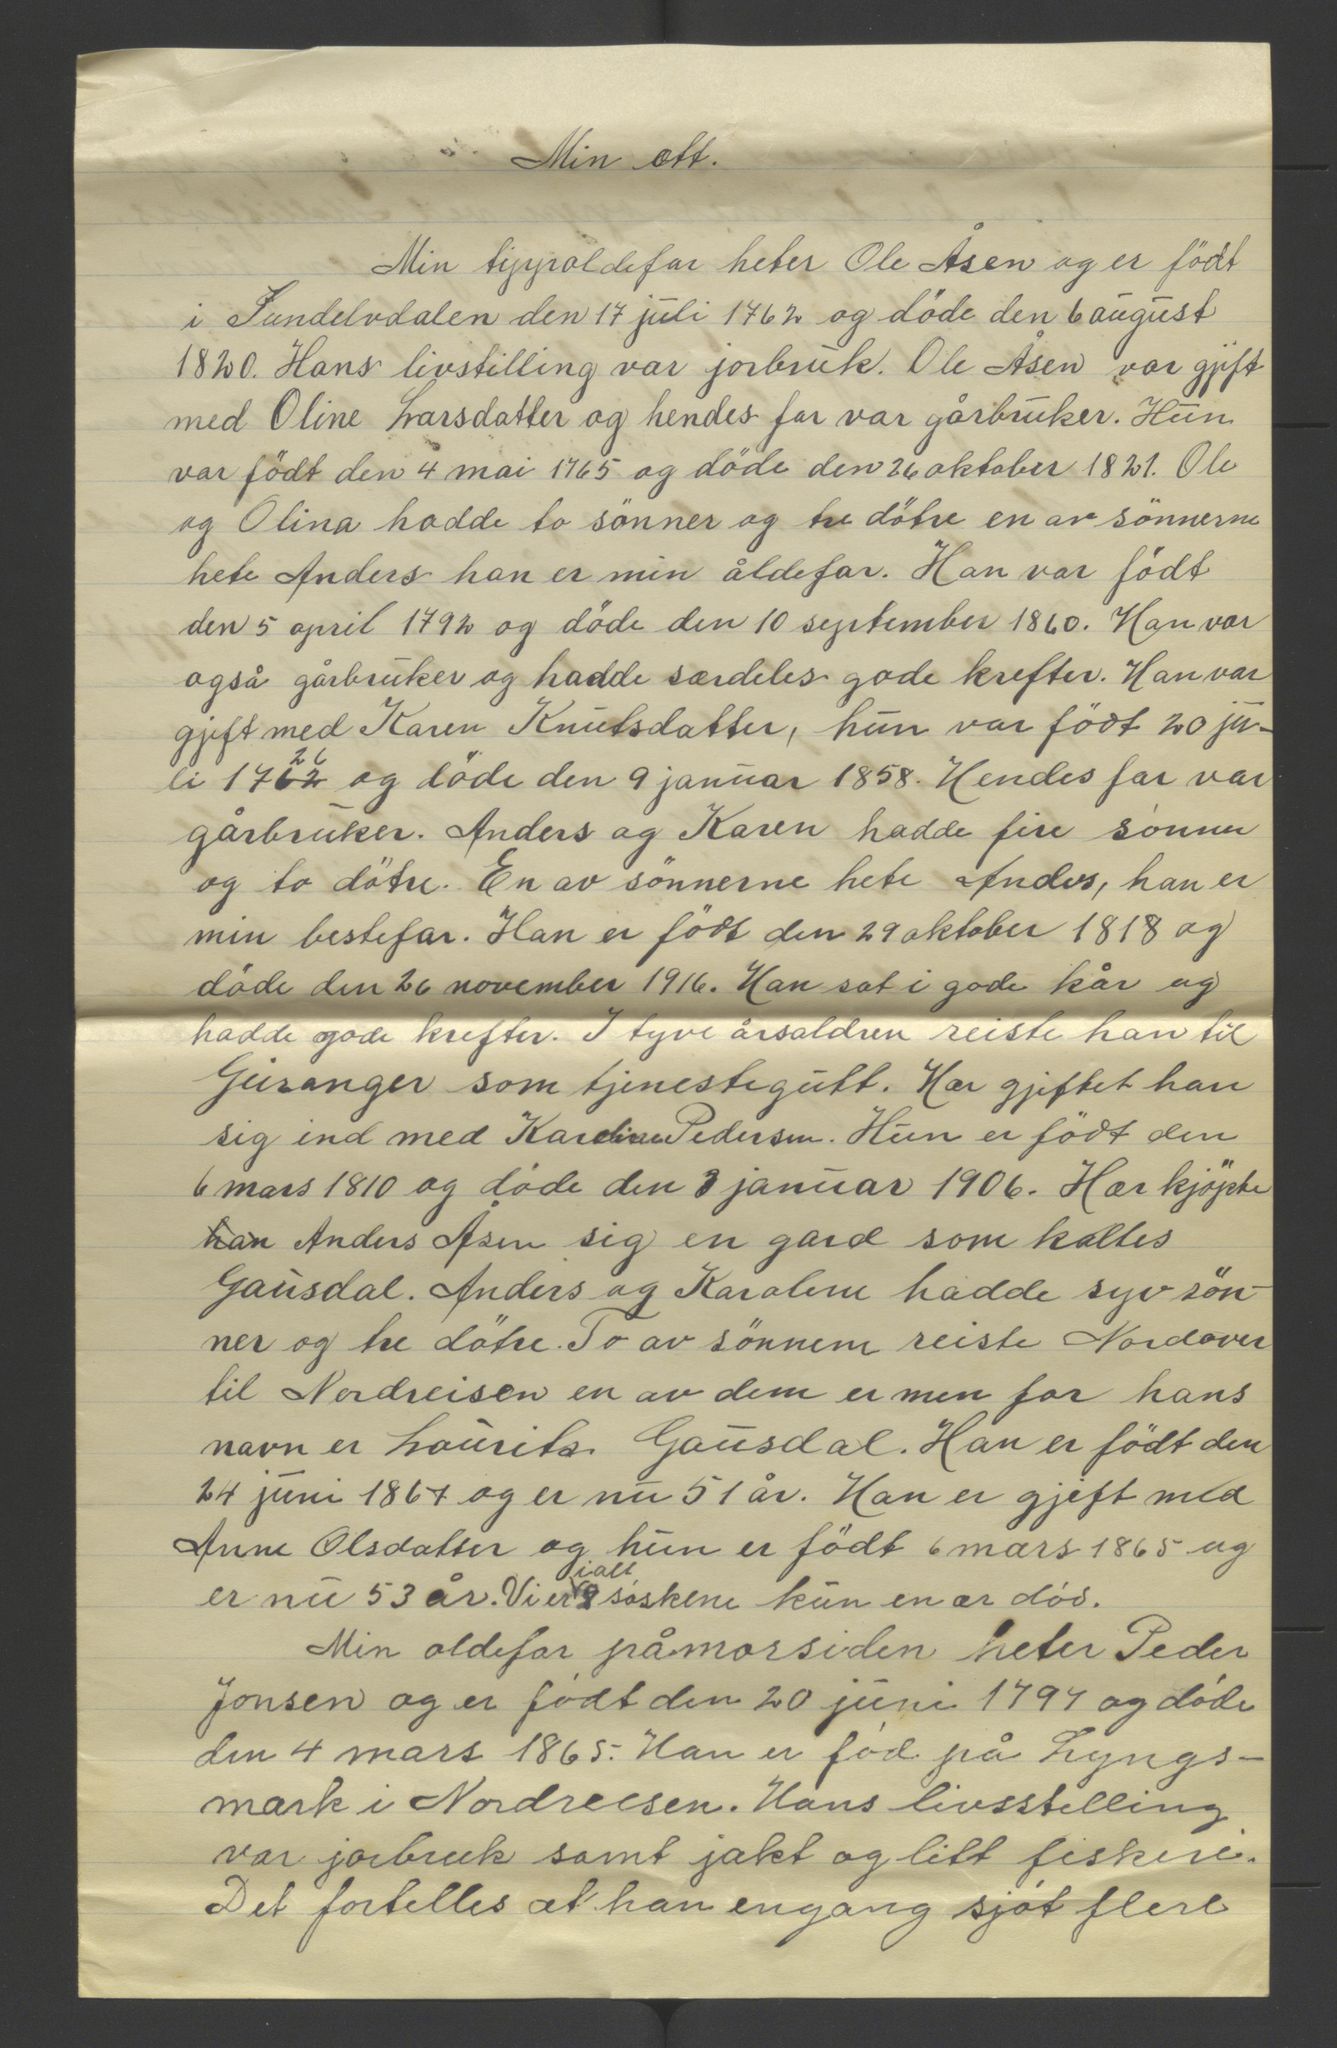 Min ætt.
Min tippoldefar heter Ole Åsen og er födt
i Sundelvdalen den 17 juli 1762 og döde den 6 august
1820. Hans livstilling var jorbruk. Ole Åsen var gjift
med Oline Larsdatter og hendes far var gårbruker. Hun
var födt den 4 mai 1765 og döde den 26 oktober 1821. Ole
og Olina hadde to sönner og tre dötre en av sönnerne
hete Anders han er min åldefar. Han var födt
den 5 april 1792 og döde den 10 september 1860. Han var
også gårbruker og hadde særdeles gode krefter. Han var
gjift med Karen Knutsdatter, hun var födt 20 ju-
26
li 1762 og döde den 9 januar 1858. Hendes far var
gårbruker. Anders og Karen hadde fire sönner
og to dötre. En av sönnerne hete Anders, han er
min bestefar. Han er födt den 29 oktober 1818 og
döde den 26 november 1916. Han sat i gode kår og
hadde gode krefter. I tyve årsaldren reiste han til
Geiranger som tjenestegutt. Her gjiftet han
sig ind med Pedersen. Hun er födt den
6 mars 1810 og döde den 3 januar 1906. Her kjöpte
han Anders Åsen sig en gard som kaltes
Gausdal. Anders og Karolene hadde syv sön-
ner og tre dötre. To av sönnene reiste Nordover
til Nordreisen en av dem er men far hans
navn er Laurits Gausdal. Han er födt den
24 juni 1867 og er nu 51 år. Han er gjeft med
Anne Olsdatter og hun er födt 6 mars 1865 og
ialt
er nu 53 år. Vi er 9 söskene kun en er död.
Min oldefar på morsiden heter Peder
Jonsen og er födt den 20 juni 1797 og döde
den 4 mars 1865. Han er föd på Lyngs-
mark i Nordreesen. Hans livsstelling
var jorbruk samt jakt og litt fiskeri.
Det fortelles at han engang sjöt flere